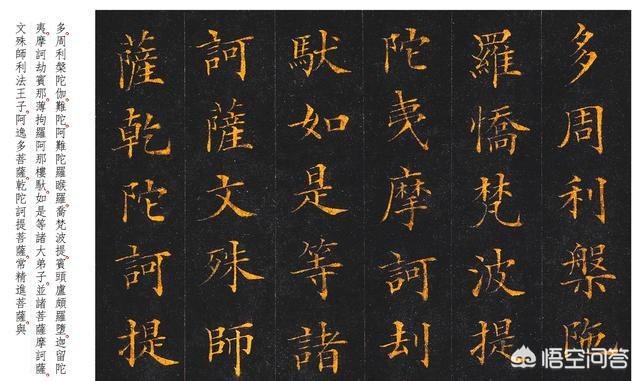 多周利槃陁
羅憍梵波提
陀夷摩訶刦
馱如是等諸
訶薩文殊師
薩乾陀訶提
多周利槃陀伽。難陀。阿難陀。羅睺羅。喬梵波提。賓頭盧頗羅墮。迦留陀
夷。摩訶劫賓那。薄拘羅。阿那樓馱。如是等諸大弟子。並諸菩薩摩訶薩。
文殊師利法王子。阿逸多菩薩。乾陀訶提菩薩。常精進菩薩。與
悟空问答